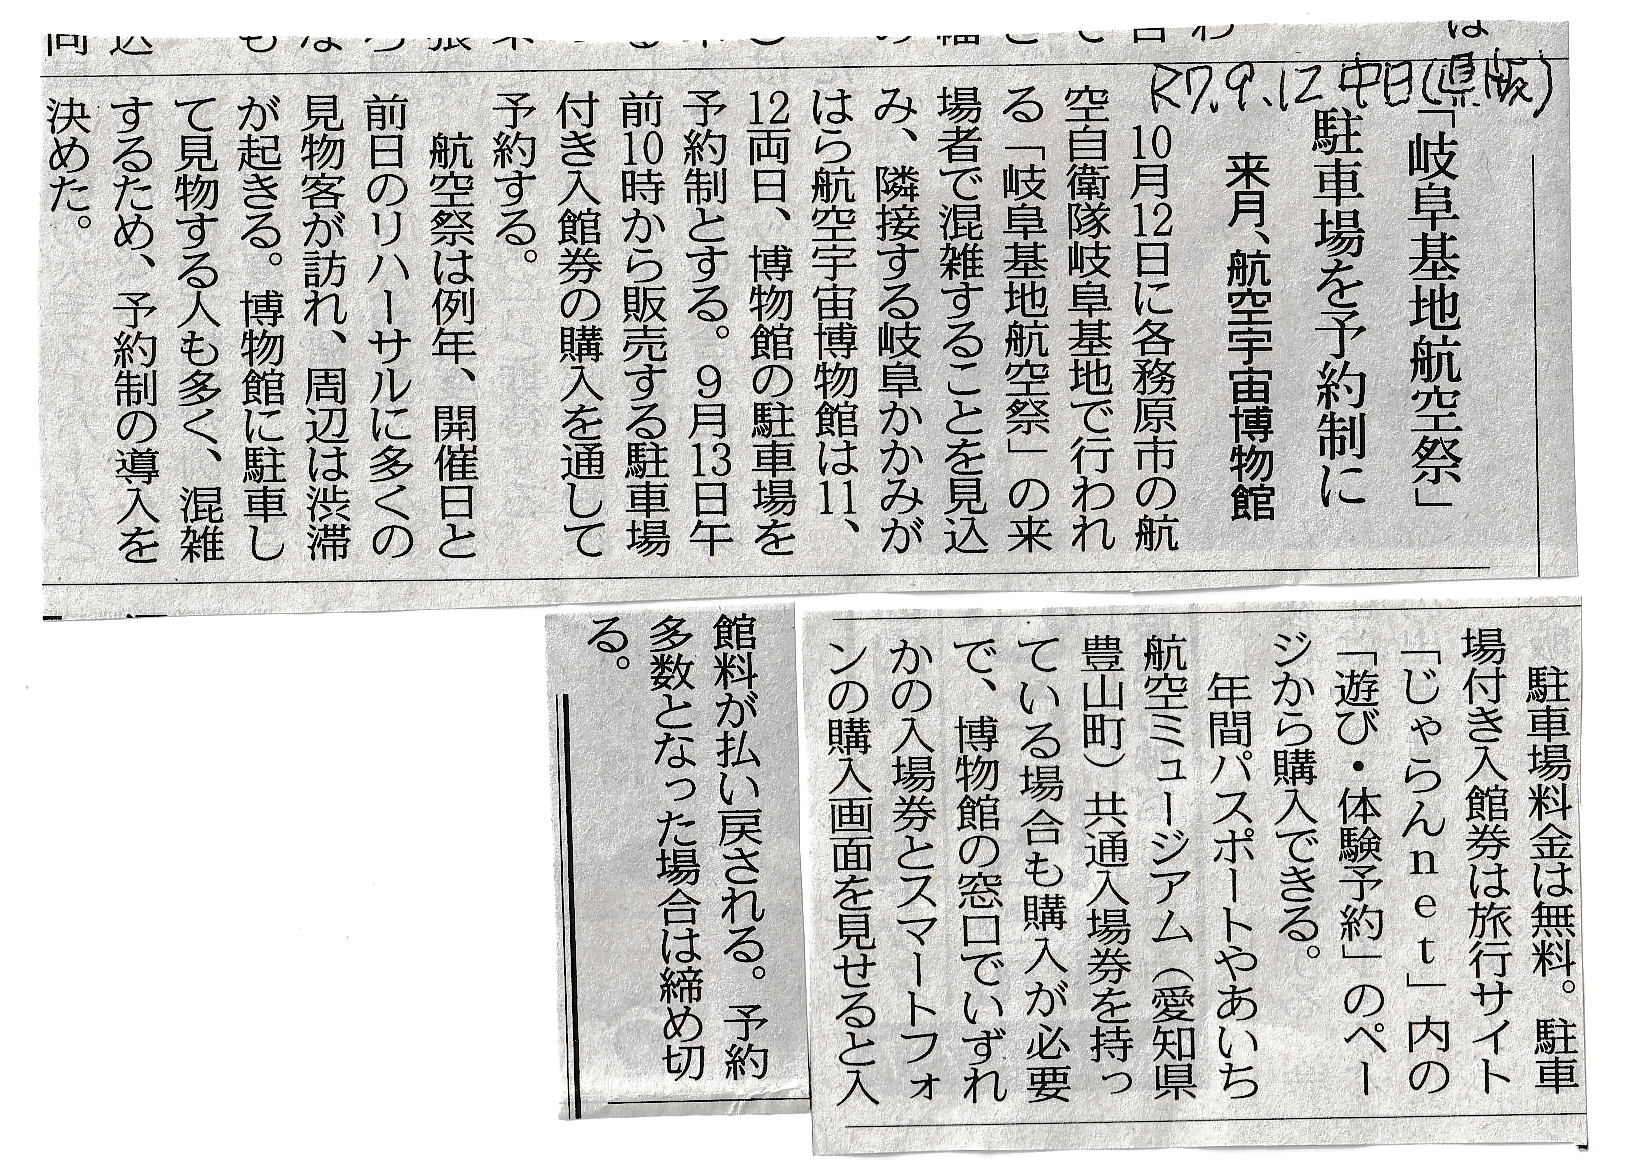 R7.9.12 中日(県版)
「岐阜基地航空祭」
駐車場を予約制に
来月、航空宇宙博物館
10月12日に各務原市の航
空自衛隊岐阜基地で行われ
る「岐阜基地航空祭」の来
場者で混雑することを見込
み、隣接する岐阜かかみが
はら航空宇宙博物館は11、
12両日、博物館の駐車場を
予約制とする。9月13日午
前10時から販売する駐車場
付き入館券の購入を通して
予約する。
航空祭は例年、開催日と
前日のリハーサルに多くの
見物客が訪れ、周辺は渋滞
が起きる。博物館に駐車し
て見物する人も多く、混雑
するため、予約制の導入を
決めた。
駐車場料金は無料。駐車
場付き入館券は旅行サイト
「じゃらんnet」内の
「遊び・体験予約」のペー
ジから購入できる。
年間パスポートやあいち
航空ミュージアム(愛知県
豊山町)共通入場券を持っ
ている場合も購入が必要
で、博物館の窓口でいずれ
かの入場券とスマートフォ
ンの購入画面を見せると入
館料が払い戻される。予約
多数となった場合は締め切
る。